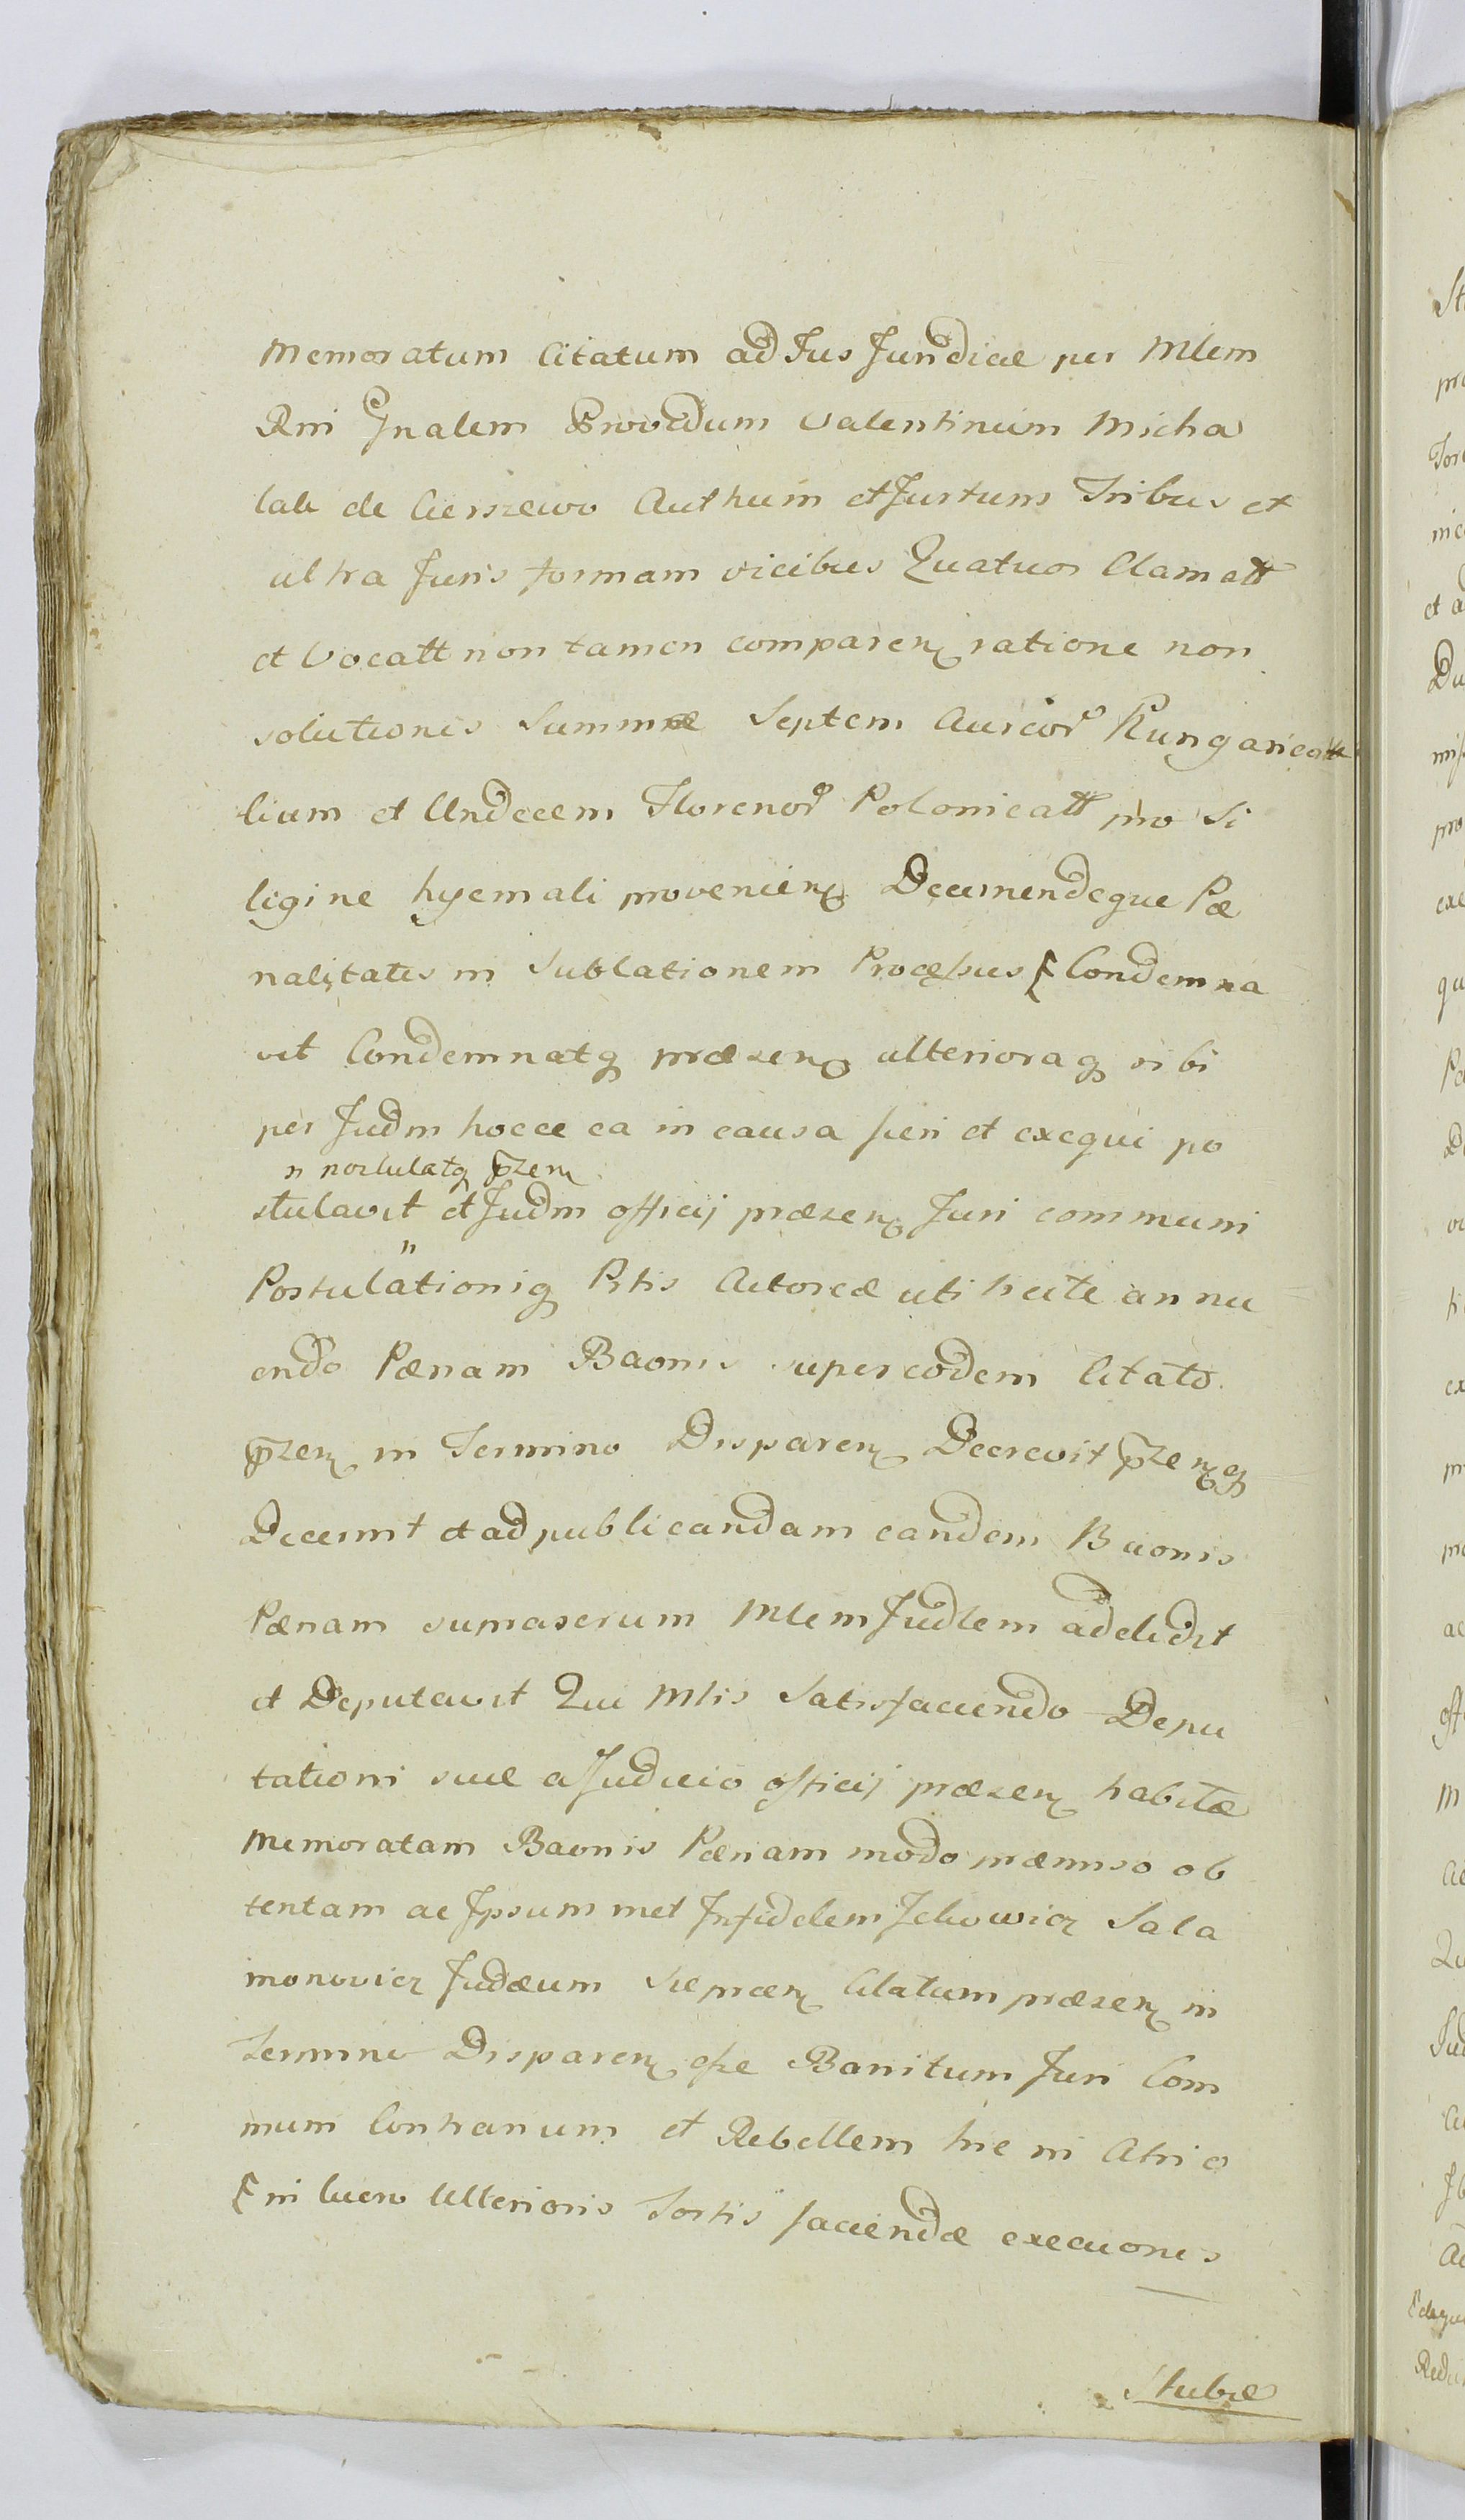 Memoratum Citatum ad Jus Juridice per Mlem
Rni Gnalem Providum Valentinum Micha
lak de Cierszewo Authum et Juratum Tribus et
ultra Juris formam vicibus Quatuor Clamatt
et Vocatt non tamen comparen ratione non
solutionis Summæ Septem Aureor Hungaricali
lium et Undecem Florenor Polonicall pro Si
ligine hyemali provenien Decernendeque Pæ
nalitatis in Sublationem Processus Condemna
vit Condemnatq præsen ulterioraq sibi
per Judm hocce ea in causa fieri et exequi po
" postulatq przen
stulavit et Judm officij præsen Juri communi
"
Postulationiq Ptis Actoreæ uti ricite annu
endo Pænam Baonis super eodem Citato
przen in Termino Disparen Decrevit przenq
Decernit et ad publicandam eandem Baonis
Pænam supraserum Mlem Judlem addidit
et Deputavit Qui Mlis Satisfaciendo Depu
tationi suæ a Judicio officij præsen habitæ
Memoratam Baonis Pænam modo præmiso ob
tentam ac Ipsum met Infidelem Jckowicz Sala
monowicz Judæum Siepcen Citatum præsen in
Termino Disparen esse Banitum Juri Com
muni Contrarium et Rebellem hic in Atrio
in lucro Ulterioris Sortis faciendæ execuonis
Stubæ